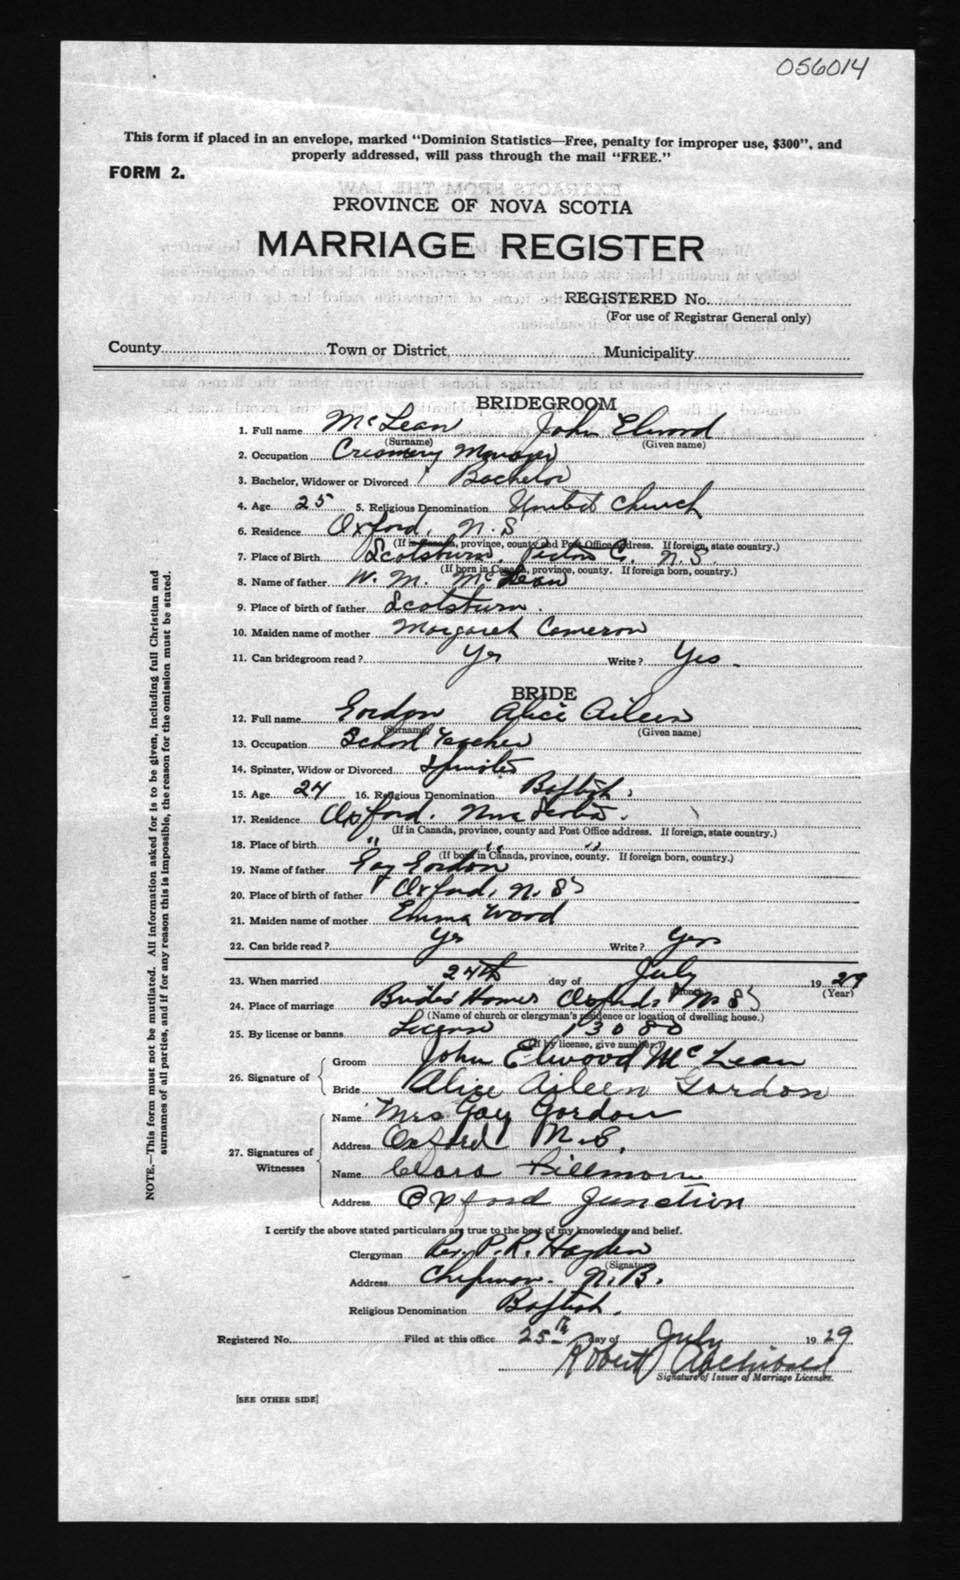 056014
This form if placed in an envelope, marked "Dominion Statistics—Free, penalty for improper use, $300", and
properly addressed, will pass through the mail "FREE."
FORM 2.
PROVINCE OF NOVA SCOTIA
MARRIAGE REGISTER
REGISTERED No.
(For use of Registrar General only)
County Town or District Municipality
BRIDEGROOM
1. Full name McLean John Elwood
(Surname) (Given name)
2. Occupation Creamery Manager
3. Bachelor, Widower or Divorced Bachelor
4. Age 25 5. Religious Denomination United Church
6. Residence Oxford, N.S
(If in Canada, province, county and Post Office address. If foreign, state country.)
7. Place of Birth Scotsburn, Pictou C. N.S.
(If born in Canada, province, county. If foreign born, country.)
8. Name of father W. M. McLean
9. Place of birth of father Scotsburn.
10. Maiden name of mother Margaret Cameron
11. Can bridegroom read? Yes Write? Yes.
BRIDE
12. Full name Gordon Alice Aileen
(Surname) (Given name)
13. Occupation School Teacher
14. Spinster, Widow or Divorced Spinster
15. Age 24 16. Religious Denomination Baptist.
17. Residence Oxford. Nova Scotia.
(If in Canada, province, county and Post Office address. If foreign, state country.)
18. Place of birth " " "
(If born in Canada, province, county. If foreign born, country.)
19. Name of father Gay Gordon
20. Place of birth of father Oxford, N. S
21. Maiden name of mother Emma Wood
22. Can bride read? Yes Write? Yes
23. When married 24th day of July 1929
(Month) (Year)
24. Place of marriage Brides Home Oxford N S
(Name of church or clergyman's residence or location of dwelling house.)
25. By license or banns License 13080
(If by license, give number.)
26. Signature of Groom John Elwood McLean
Bride Alice Aileen Gordon
27. Signatures of Witnesses
Name Mrs Gay Gordon
Address Oxford N.S.
Name Clara
Address Oxford Junction
I certify the above stated particulars are true to the best of my knowledge and belief.
Clergyman Rev. P. R. Hayden
(Signature)
Address Chipman. N.B.
Religious Denomination Baptist.
Registered No. Filed at this office 25th day of July 1929
Robert Archibald
Signature of Issuer of Marriage Licenses.
[SEE OTHER SIDE]
NOTE.—This form must not be mutilated. All information asked for is to be given, including full Christian and
surnames of all parties, and if for any reason this is impossible, the reason for the omission must be stated.